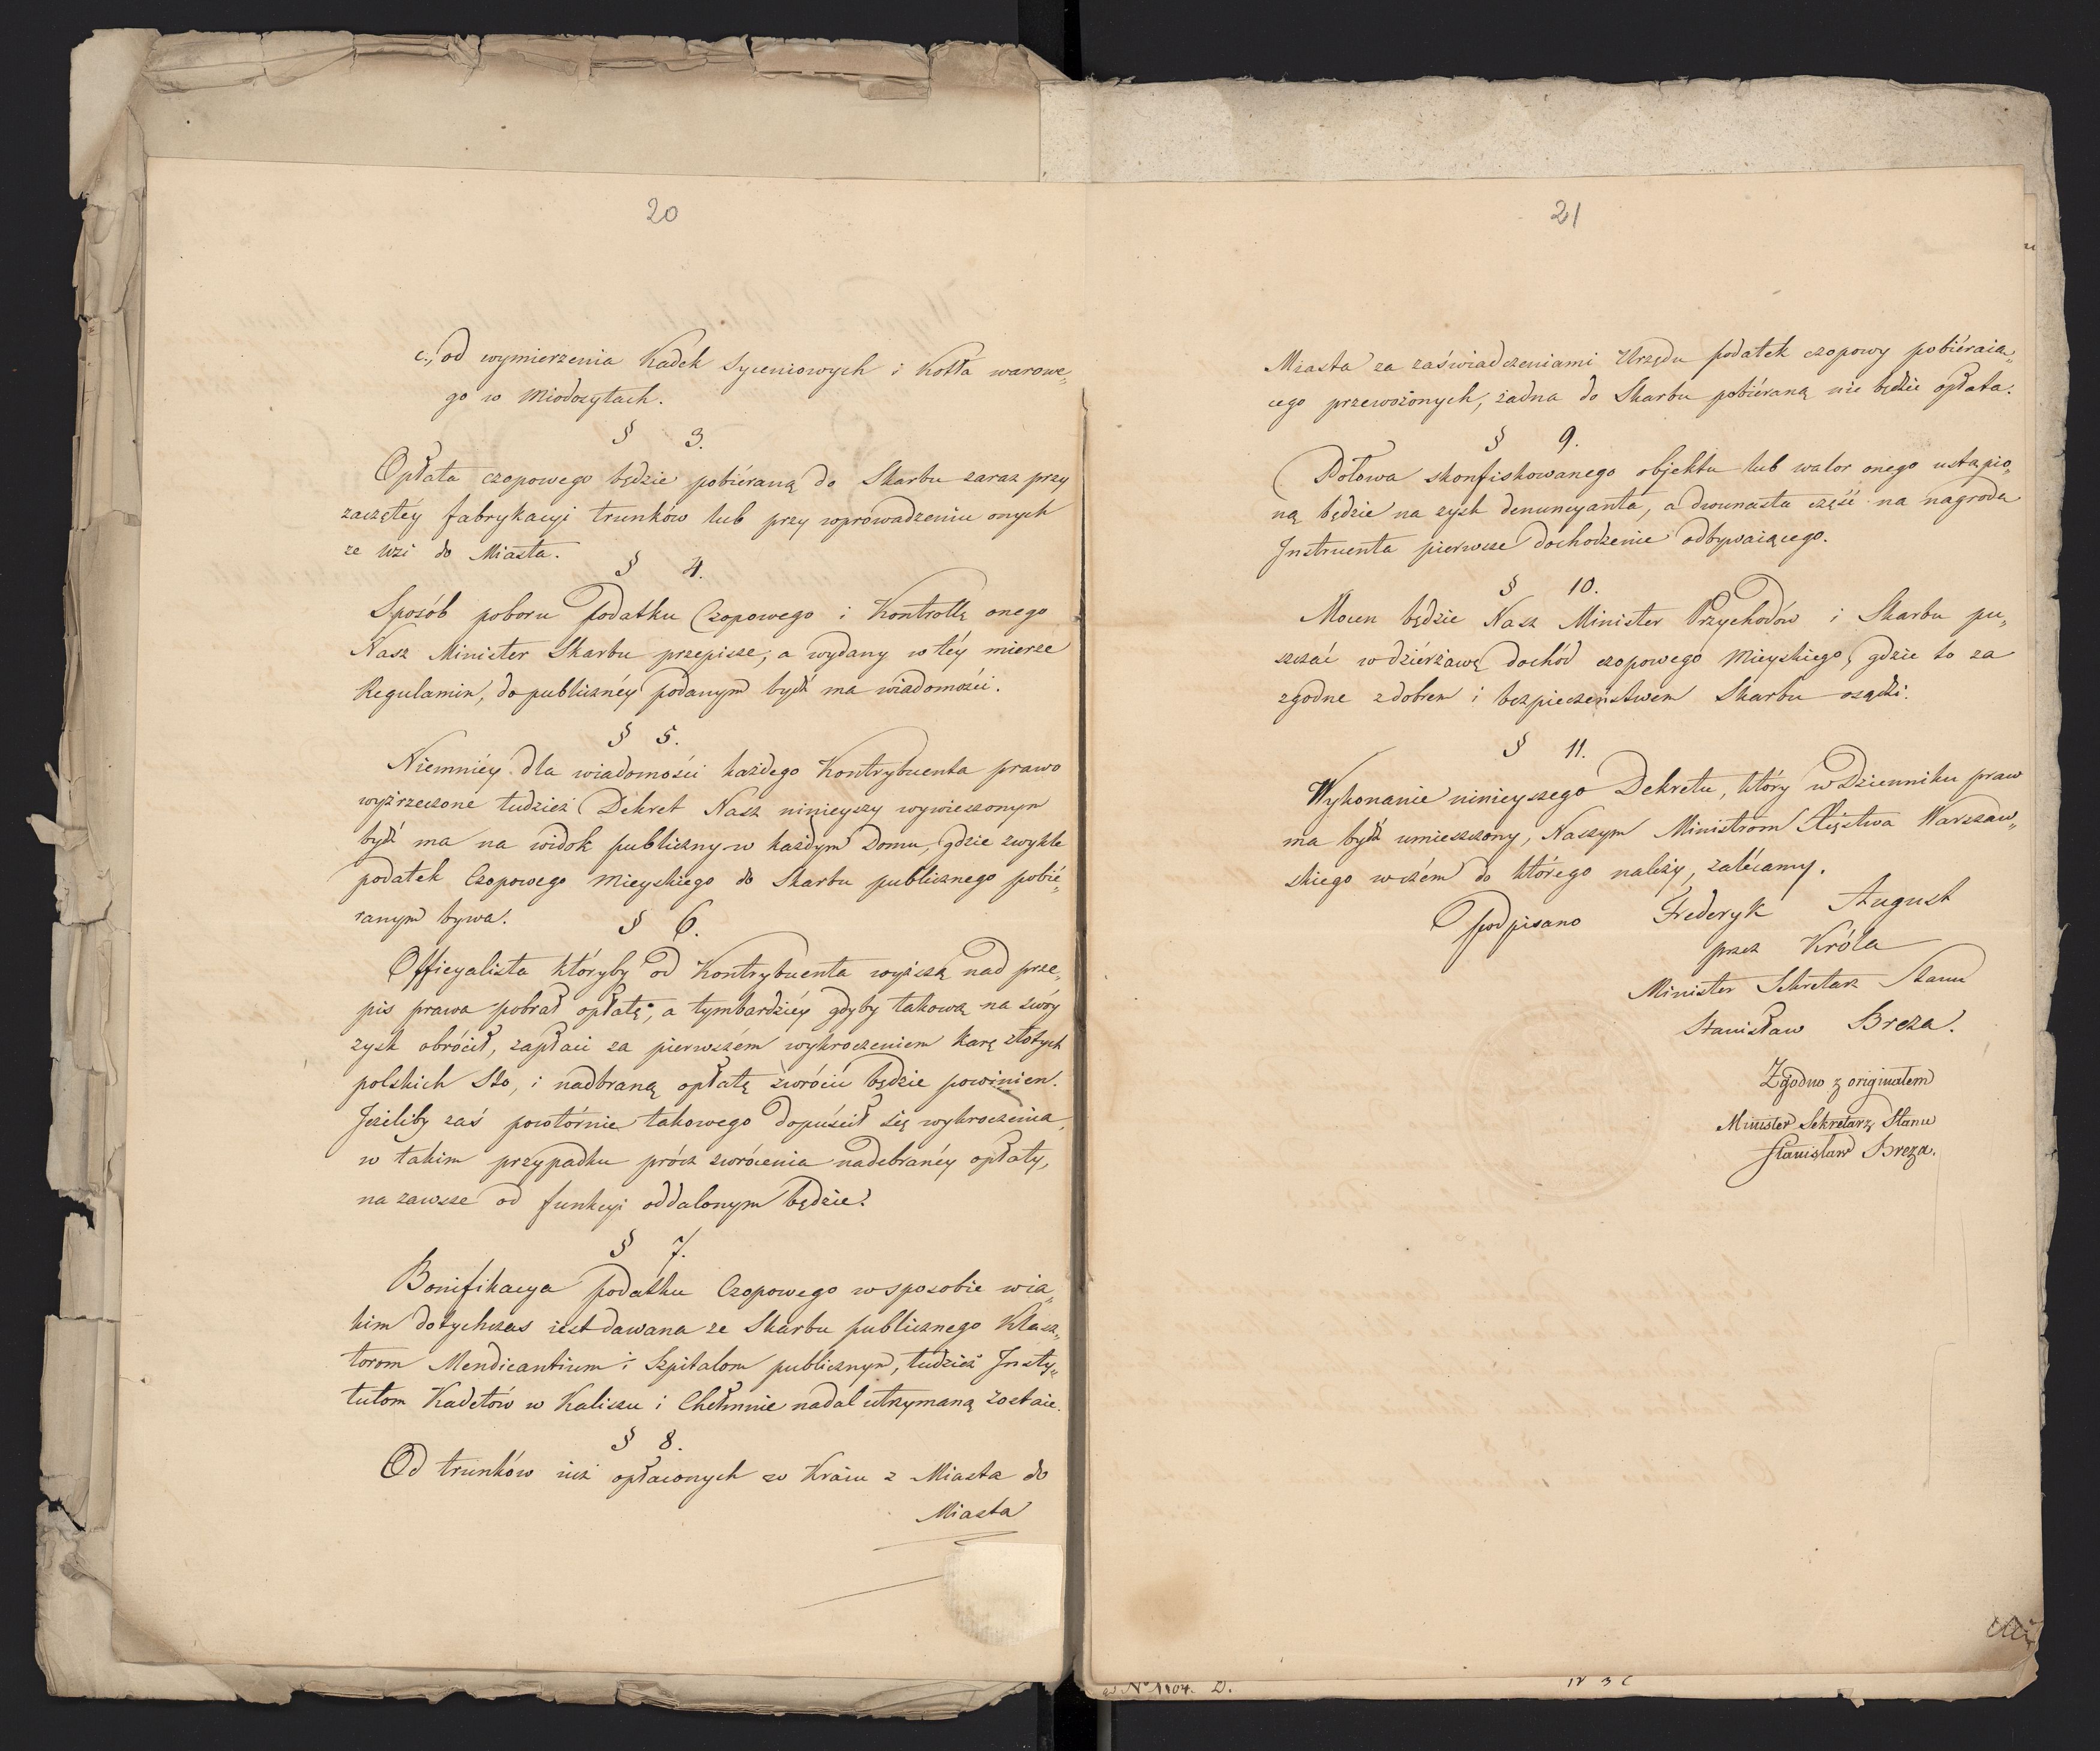 20
c., od wymierzenia Kadek Syceniowych i Kotła warowe„
go w Miodosytach.
§ 3.
Opłata czopowego będzie pobiéraną do Skarbu zaraz przy
zaczętéy fabrykacyi trunków lub przy wprowadzeniu onych
ze Wsi do Miasta.
§ 4.
Sposób poboru Podatku Czopowego i Kontrollę onego
Nasz Minister Skarbu przepisze; a wydany w téy mierze
Regulamin, do publicznéy podanym bydź ma wiadomości.
§ 5.
Niemniéy dla wiadomości każdego Kontrybuenta prawo
wyżrzeczone tudzież Dekret Nasz ninieyszy wywieszonym
bydź ma na widok publiczny w każdym Domu, gdzie zwykle
podatek Czopowego Mieyskiego do Skarbu publicznego pobié„
ranym bywa.
§ 6.
Officyalista któryby od Kontrybuenta wyższą nad prze„
pis prawa pobrał opłatę; a tymbardziéy gdyby takową na swóy
zysk obrócił, zapłaci za pierwszém wykroczeniem karę złotych
polskich Sto, i nadbraną opłatę zwrócić będzie powinien.
Jeżeliby zaś powtórnie takowego dopuścił się wykroczenia,
w takim przypadku prócz zwrócenia nadebranéy opłaty,
na zawsze od funkcyi oddalonym będzie.
§ 7.
Bonifikacya podatku Czopowego w sposobie w ia„
kim dotychczas iest dawana ze Skarbu publicznego Klasz„
torom Mendicantium i Szpitalom publicznym, tudzież Insty„
tutom Kadetów w Kaliszu i Chełmnie nadal utrzymaną zostaie.
§ 8.
Od trunków iuż opłaconych w Kraiu z Miasta do
Miasta
21
Miasta za zaświadczeniami Urzędu podatek czopowy pobiéraią„
cego przewożonych, żadna do Skarbu pobiéraną nie będzie opłata.
§ 9.
Połowa skonfiskowanego objektu lub walor onego ustąpio„
ną będzie na zysk denuncyanta, a dwunasta część na nagrodę
Instruenta pierwsze dochodzenie odbywaiącego.
§ 10.
Mocen będzie Nasz Minister Przychodów i Skarbu pu„
szczać w dzierżawę dochód czopowego Mieyskiego, gdzie to za
zgodne z dobrem i bezpieczeństwem Skarbu osądzi.
§ 11.
Wykonanie ninieyszego Dekretu, który w Dzienniku praw
ma bydź umieszczony, Naszym Ministrom Xięstwa Warszaw„
skiego w czém do którego należy, zalécamy.
Podpisano Frederyk August
przez Króla
Minister Sekretarz Stanu
Stanisław Breza.
Zgodno z originałem
Minister Sekretarz Stanu
Stanisław Breza.
ad No 1104. D.